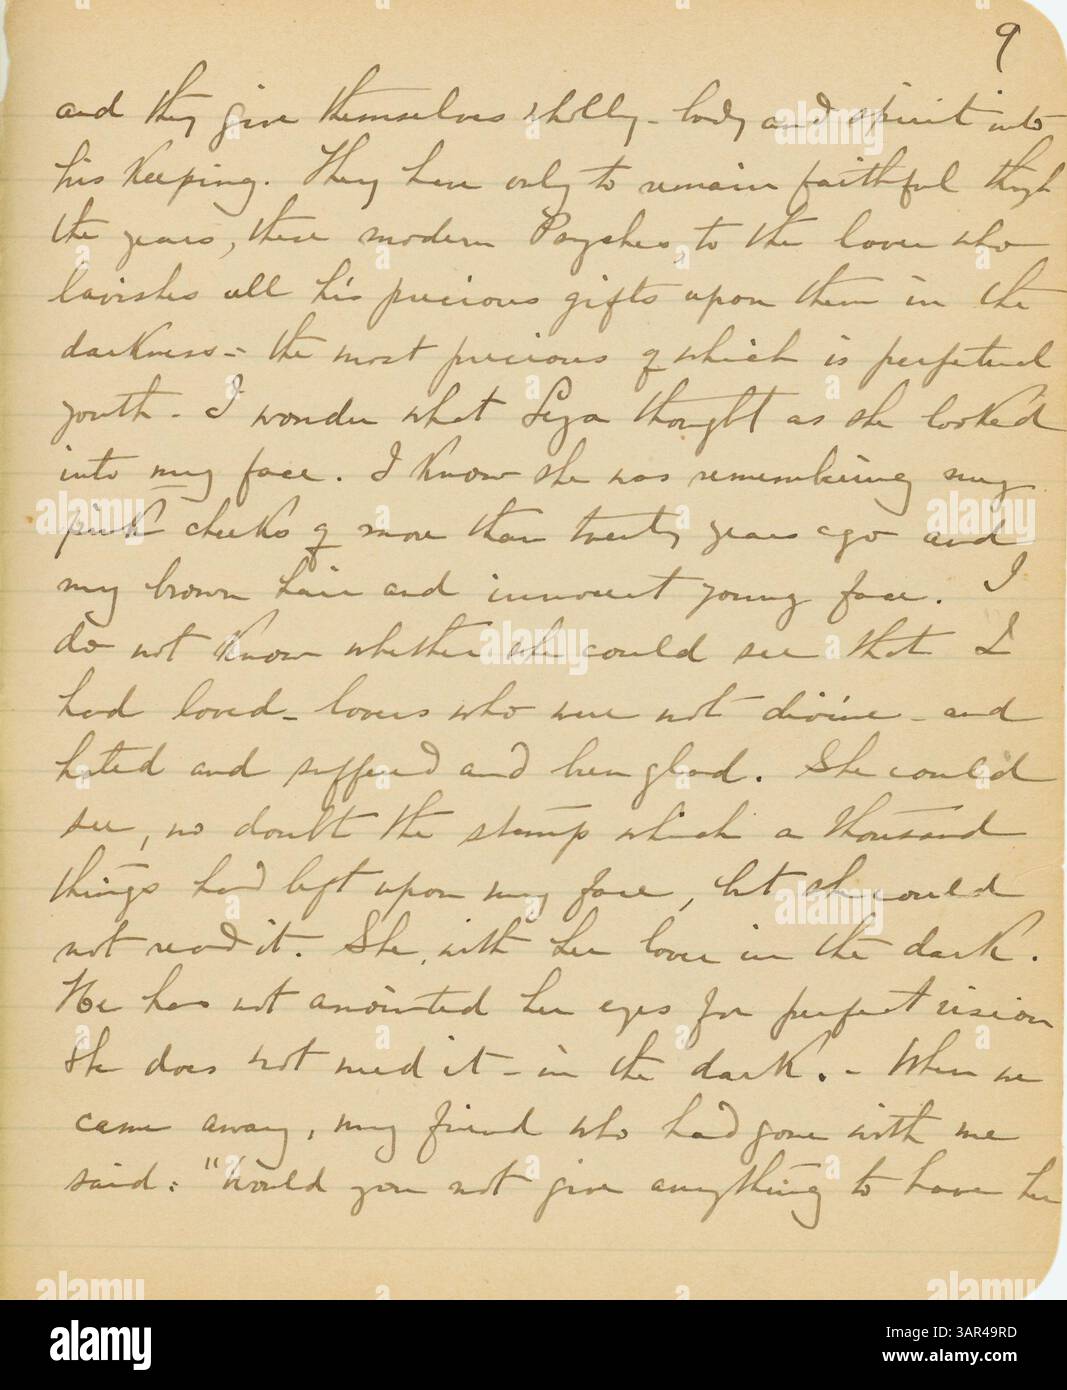 9
and they give themselves wholly - body and spirit into
his keeping. They have only to remain faithful through
the years, these modern Psyches, to the lover who
lavishes all his precious gifts upon them in the
darkness - the most precious of which is perpetual
youth - I wonder what Liza thought as she looked
into my face. I know she was remembering my
pink cheeks of more than twenty years ago and
my brown hair and innocent young face. I
do not know whether she could see that I
had loved - lovers who were not divine - and
hated and suffered and been glad. She could
see, no doubt the stamp which a thousand
things had left upon my face, but she could
not read it. She, with her lover in the dark.
He has not anointed her eyes for perfect vision
She does not need it - in the dark. - When we
came away, my friend who had gone with me
said: "Would you not give anything to have her
alamy
Image ID: 3AR49RD
www.alamy.com